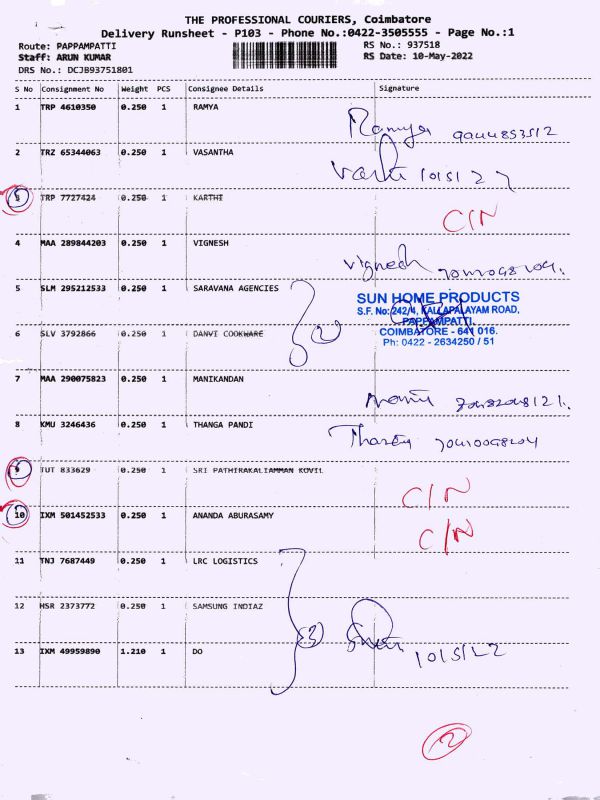 THE PROFESSIONAL COURIERS, Coimbatore
Delivery Runsheet - P103 - Phone No.:0422-3505555 - Page No.:1
Route: PAPPAMPATTI
RS No.: 937518
Staff: ARUN KUMAR
RS Date: 10-May-2022
DRS No.: DCJB93751801
S No Consignment No Weight PCS Consignee Details Signature
1 TRP 4610350 0.250 1 RAMYA
Ramya 9944853512
2 TRZ 65344063 0.250 1 VASANTHA
10/5/22
3 TRP 7727424 0.250 1 KARTHI
C/N
4 MAA 289844203 0.250 1 VIGNESH
Vignesh
5 SLM 295212533 0.250 1 SARAVANA AGENCIES
SUN HOME PRODUCTS
S.F. No: 242/4, KALLAPALAYAM ROAD,
PAPPAMPATTI,
COIMBATORE - 641 016.
Ph: 0422 - 2634250 / 51
6 SLV 3792866 0.250 1 DANVI COOKWARE
(2)
7 MAA 290075823 0.250 1 MANIKANDAN
8 KMU 3246436 0.250 1 THANGA PANDI
9 TUT 833629 0.250 1 SRI PATHIRAKALIAMMAN KOVIL
C/N
10 IXM 501452533 0.250 1 ANANDA ABURASAMY
C/N
11 TNJ 7687449 0.250 1 LRC LOGISTICS
12 HSR 2373772 0.250 1 SAMSUNG INDIAZ
(3)
13 IXM 49959890 1.210 1 DO
10/5/22
2